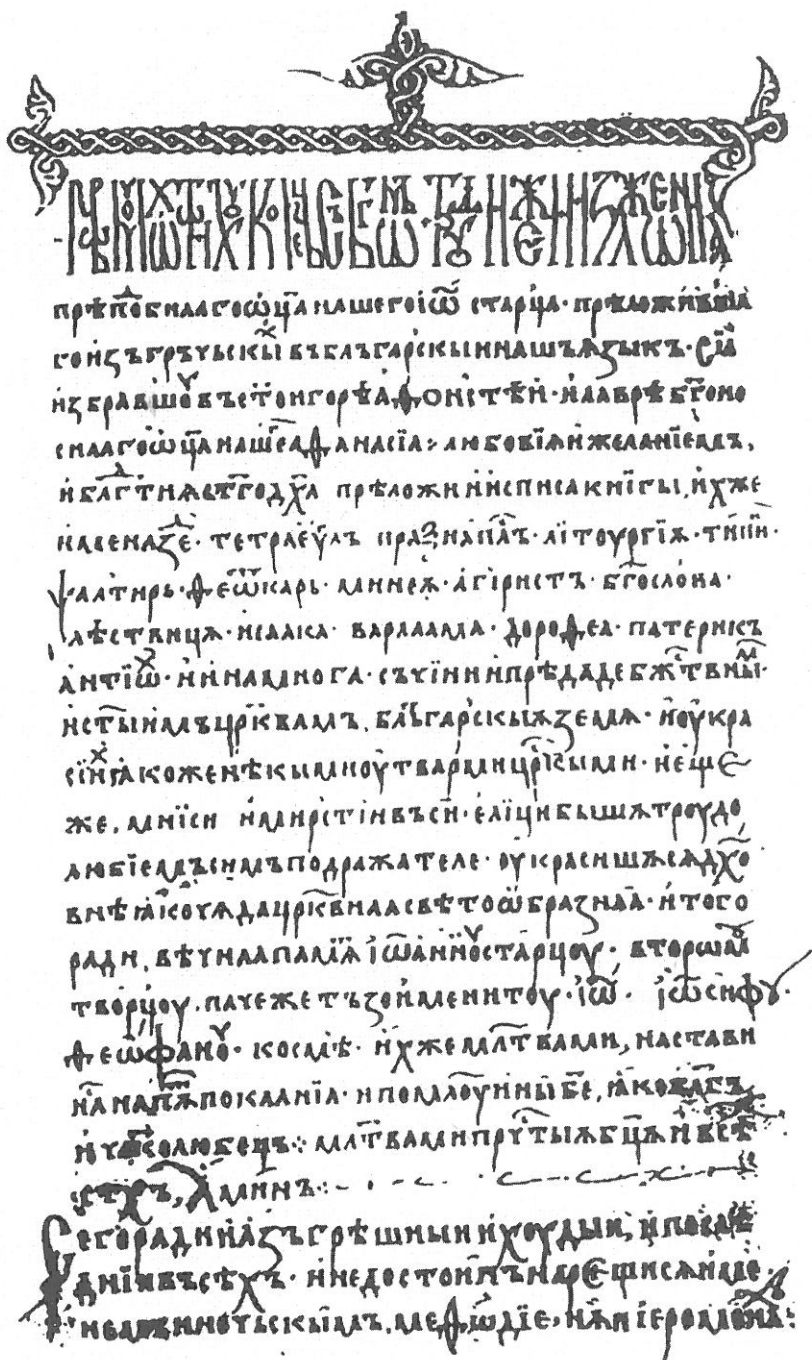 прѣпⷣобнаагоѡц҃анашегоіѡ҃ старца · прѣложившаа
гоизъгръчьскыⷯ въблъгарскыинашъѧзыкъ · сїа
избравшоⷹ въст҃ѣигорѣаѳѡнстѣи · илаврѣбг҃оно
снаагоѡц҃анашегⷪаѳанасїа · любовїѫижеланїемъ,
иблагⷣтїѫст҃годх҃а прѣложииисписакнїгы, ихже
именазⷣе · тетраеѵⷢлъ праѯиапⷭлъ · літоургїѫ · тѵпиⷦ ·
ѱалтирь · ѳеѡⷮкарь · минеѫ · агіристъ · бг҃ослова ·
лѣствицѫ · исаака · варлаама · дороѳеа · патерикъ
антїѡⷯ · иинамнога · съчїнииипрѣдадебжⷭтвныⷨ ·
ист҃ыимъцр҃квамъ, блъгарскыѫземлѧ · иоукра
сиихъꙗкоженѣкымиоутвармицрⷭкыми · иеще
же, мнїси имирстіивъси · еліцибышѫтроудо
любїемъсимъподражателе · оукрасишѫсѧдх҃о
внѣꙗкоѹдацр҃квнаасвѣтоѡбразнаа · итого
ради, вѣчнаапамїѧⷮ іѡанноⷹстарцоу · вторѡмⷹ
творцоу, пачежетъзоименитоу · іѡ҃ · іѡсифоу ·
ѳеѡфаноⷹ · козмѣ · ихжемл҃твами, настави
н҃анапѫⷮпокаанїа · ипомлоуины б҃е, ꙗкоблг҃ъ
ичл҃колюбець : мл҃твамипрчⷭтыѫбц҃ѫивсѣⷯ
ст҃хъ, аминъ :·
Сегорадииазъгрѣшныиихоудыи, ипослѣ
днїивъсѣхъ · инедостоинънарещисѧиме
немъиночьскыимъ, меѳѡдїе, мнѧиіеромона: